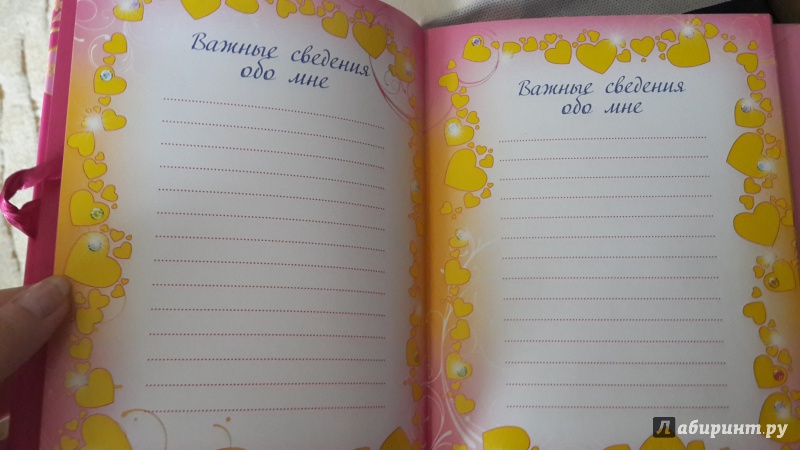 Важные сведения
обо мне
Важные сведения
обо мне
Лабиринт.ру